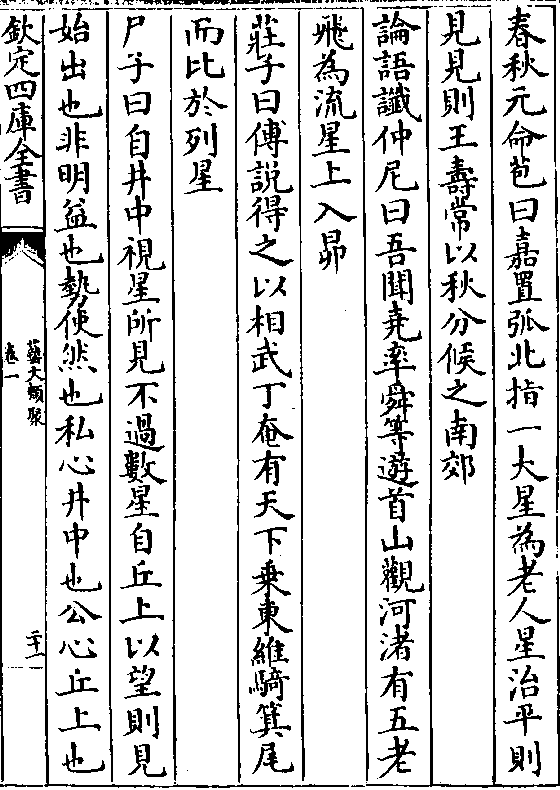 春秋元命苞曰嘉置弧北指一大星為老人星治平則
見見則王壽常以秋分候之南郊
論語讖仲尼曰吾聞堯率舜等遊首山觀河渚有五老
飛為流星上入昴
莊子曰傅説得之以相武丁奄有天下乗東維騎箕尾
而比於列星
尸子曰自井中視星所見不過數星自丘上以望則見
始出也非明益也勢使然也私心井中也公心丘上也
欽定四庫全書
藝文類聚
卷一
二十一